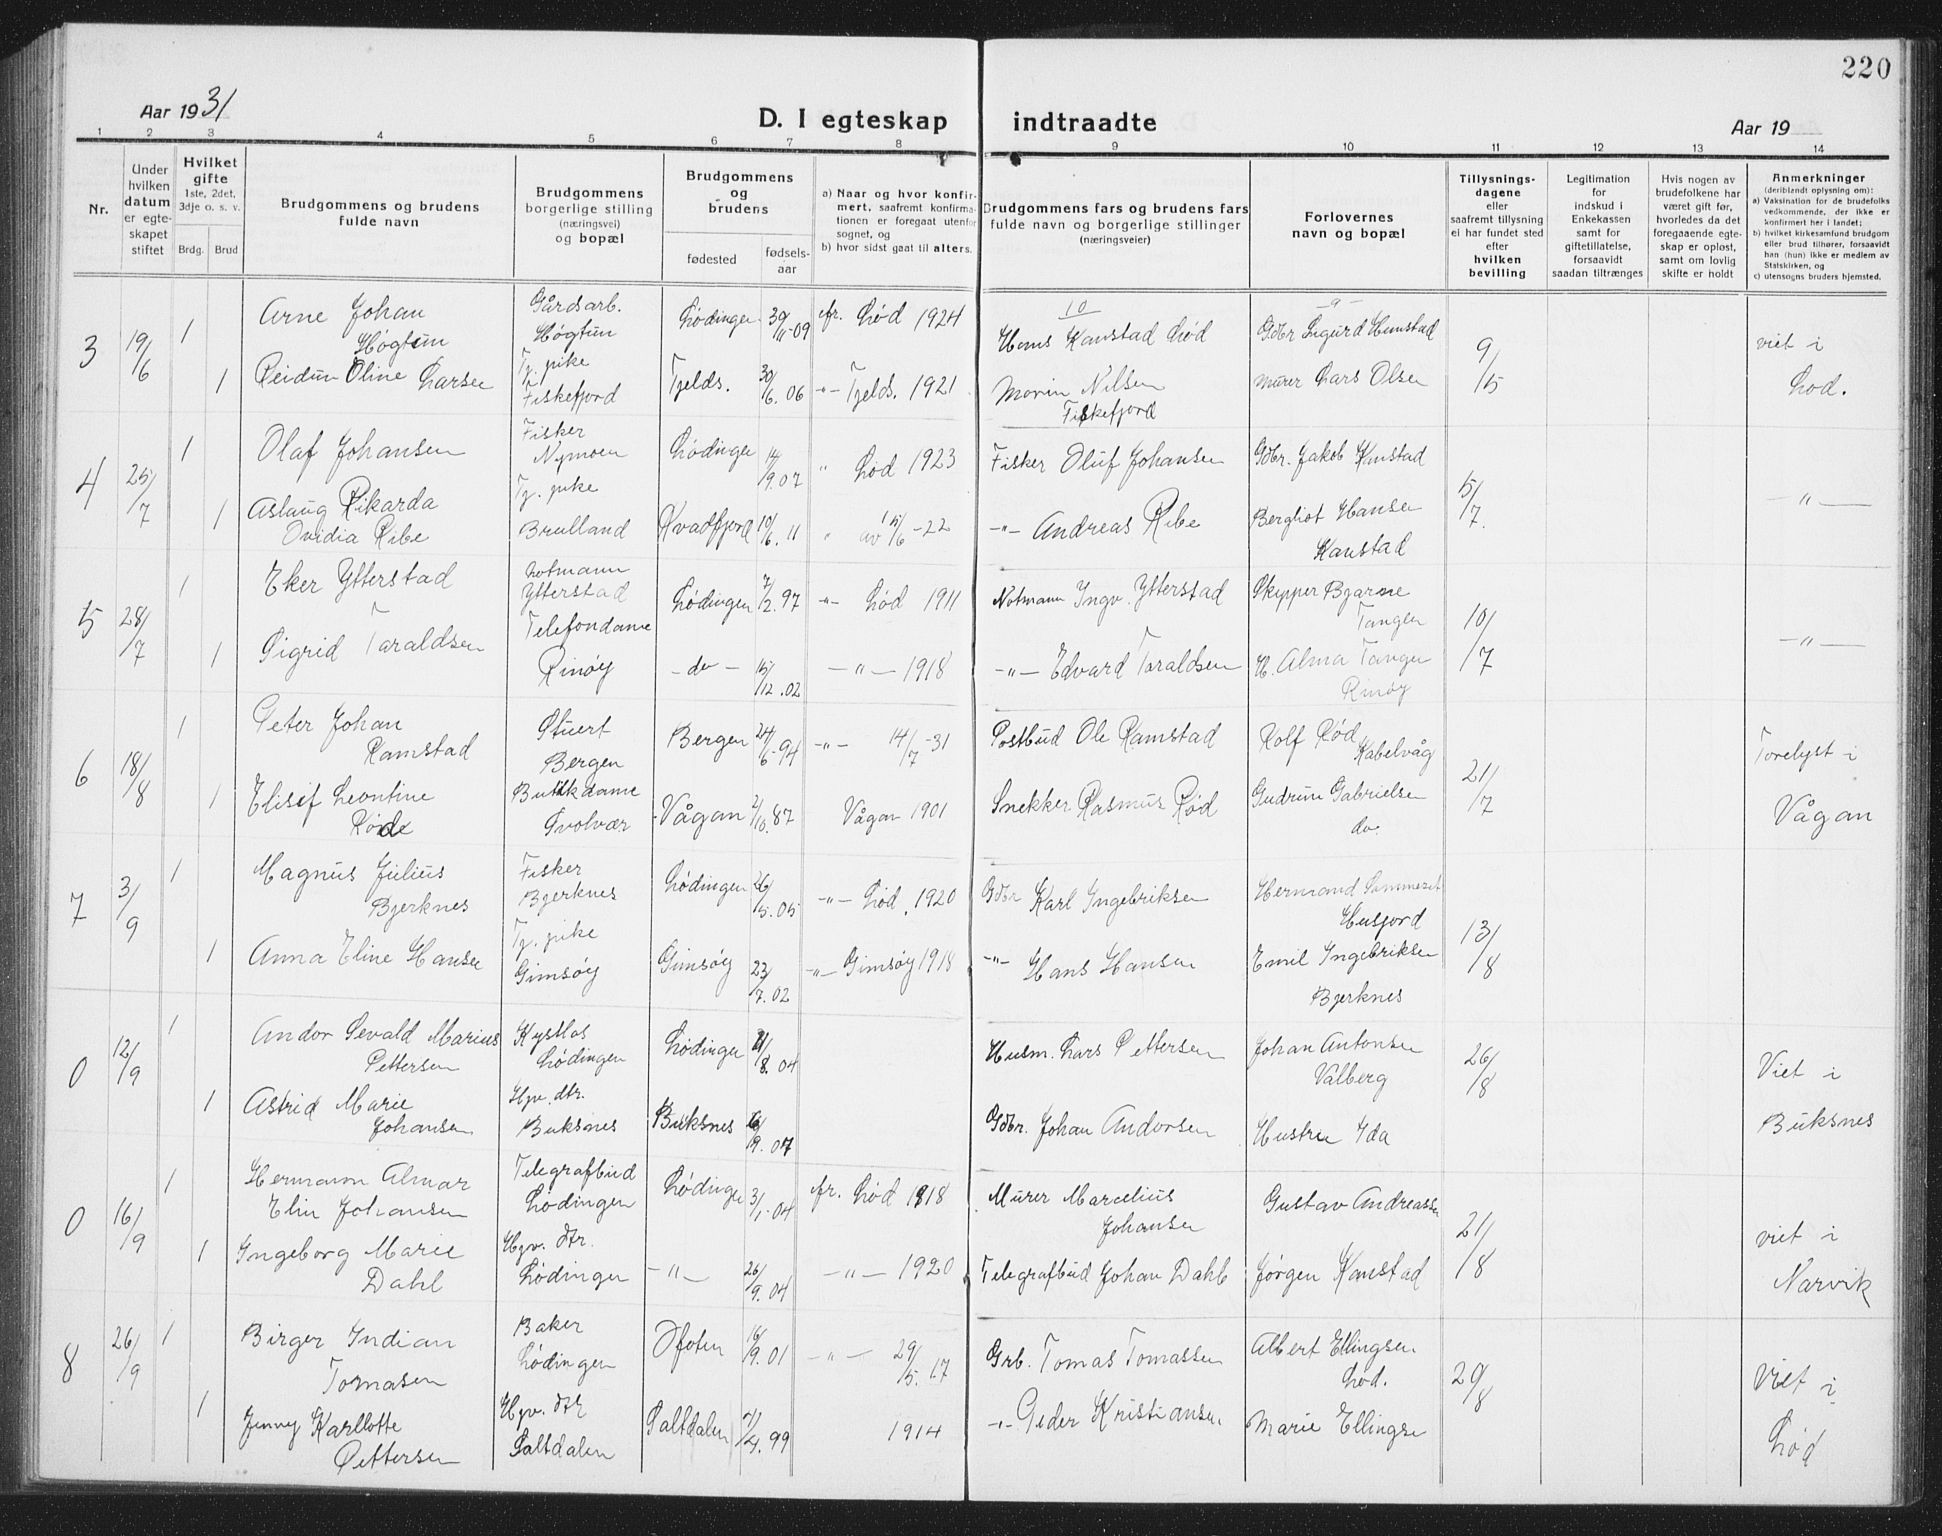 220
Aar 1931
D. I egteskap indtraadte
Aar 19
1 2 3 4 5 6 7 8 9 10 11 12 13 14
Nr.
Under hvilken datum er egte-skapet stiftet
Hvilket gifte
1ste, 2det, 3dje o. s. v.
Brdg. Brud
Brudgommens og brudens fulde navn
Brudgommens borgerlige stilling (næringsvei) og bopæl
Brudgommens og brudens
fødested
fødsels-aar
a) Naar og hvor konfir-mert, saafremt konfirma-tionen er foregaat utenfor sognet, og
b) hvor sidst gaat til alters.
Brudgommens fars og brudens fars fulde navn og borgerlige stillinger (næringsveier)
Forlovernes navn og bopæl
Tillysnings-dagene eller saafremt tillysning ei har fundet sted efter hvilken bevilling
Legitimation for indskud i Enkekassen samt for giftetillatelse, forsaavidt saadan tiltrænges
Hvis nogen av brudefolkene har været gift før, hvorledes da det foregaaende egte-skap er opløst, samt om lovlig skifte er holdt
Anmerkninger
(deriblandt oplysning om):
a) Vaksination for de brudefolks vedkommende, der ikke er konfirmert her i landet;
b) hvilket kirkesamfund brudgom eller brud tilhører, forsaavidt han (hun) ikke er medlem av Statskirken, og
c) utensogns bruders hjemsted.
3 19/6 1 Arne Johan Høgtun Gårdsarb. Høgtun Lødingen 30/11-09 fr. Lød 1924 10 Hans Kanstad Lød -9- Gdbr Sigurd Hunstad 9/5 viet i Lød.
1 Reidun Oline Larsen Tj. pike Fiskefjord Tjelds. 30/6.06 -"- Tjelds. 1921 Morin Nilsen Fiskefjord murer Lars Olsen
4 25/7 1 Olaf Johansen Fisker Nymoen Lødingen 14/9.07 " Lød 1923 Fisker Oluf Johansen Gdbr. Jakob Kanstad 5/7. -"-
1 Aslaug Rikarda Ovidia Ribe Tj. pike Brulland Kvadfjord 10/6.11 " av 15/6-22 -"- Andreas Ribe Bergliot Hansen Kanstad
5 28/7 1 Eker Ytterstad Notmann Ytterstad Lødingen 7/2.97 -"- Lød 1911 Notmann Ingv. Ytterstad Skipper Bjarne Tangen 10/7 -"-
1 Sigrid Taraldsen Telefondame Rinøy -do- 15/12.02 -"- 1918 -"- Edvard Taraldsen H. Alma Tangen Rinøy
6 18/8 1 Peter Johan Ramstad Stuert Bergen Bergen 24/6-94 -"- 14/7-31 Postbud Ole Ramstad Rolf Rød Kabelvåg 21/7 Torelyst i Vågan
1 Elisif Leontine Røde Butikdame Svolvær Vågan 2/10.87 Vågan 1901 Snekker Rasmus Rød Gudrun Gabrielsen do.
7 3/9 1 Magnus Julius Bjerknes Fisker Bjerknes Lødingen 26/5.05 -"- Lød. 1920 Gdbr Karl Ingebriksen Hermand Sommerset Husjord 13/8
1 Anna Eline Hansen Tj. pike Gimsøy Gimsøy 23/7.02 -"- Gimsøy 1918 -"- Hans Hansen Emil Ingebriksen Bjerknes
0 12/9 1 Andor Sevald Marius Pettersen Kystlos Lødingen Lødingen /8.04 Husm. Lars Pettersen Johan Antonsen Valberg 26/8 Viet i Buksnes
1 Astrid Marie Johansen Hjv. dtr. Buksnes Buksnes /9.07 Gdbr. Johan Andorsen Hustru Ida
0 16/9 1 Hermann Almar Elin Johansen Telegrafbud Lødingen Lødingen 3/1-04 fr. Lød 1918 Murer Marcelius Johansen Gustav Andreassen 21/8 viet i Narvik
1 Ingeborg Marie Dahl Hjv. dtr. Lødingen -"- 26/9.04 -"- 1920 Telegrafbud Johan Dahl Jørgen Kanstad
8 26/9 1 Birger Indian Tomasen Baker Lødingen Ofoten 16/9.01 -"- 29/5.17 Grb. Tomas Tomassen Albert Ellingsen Lød. 29/8 Viet i Lød
1 Jenny Karllotte Pettersen Hjv. dtr Saltdalen Saltdalen /4.99 1914 -"- Peder Kristiansen Marie Ellingsen